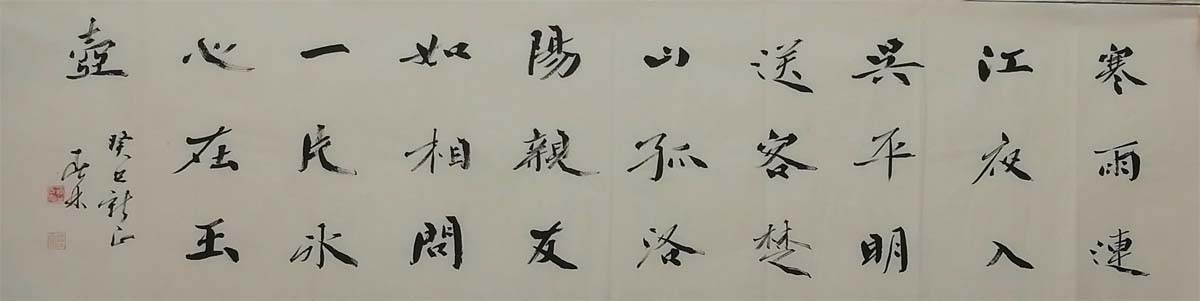 寒雨漣
江夜入
吳平明
送客楚
山孤洛
陽親友
如相問
一片冰
心在玉
壺
癸巳